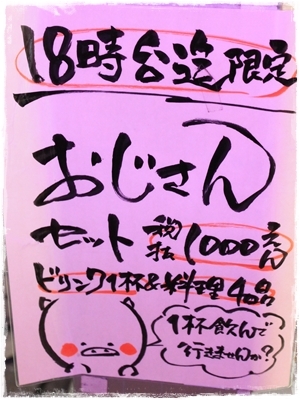 18時台迄限定
おじさん
セット 税抜 1000えん
ドリンク1杯&料理4品
1杯飲んで
行きませんか?